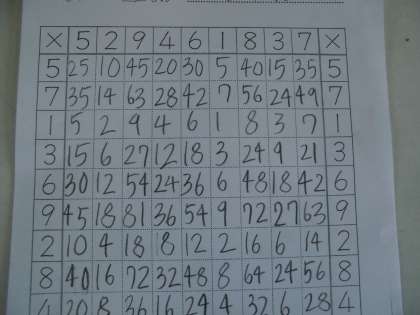 × 5 2 9 4 6 1 8 3 7 ×
5 25 10 45 20 30 5 40 15 35 5
7 35 14 63 28 42 7 56 24 49 7
1 5 2 9 4 6 1 8 3 7 1
3 15 6 27 12 18 3 24 9 21 3
6 30 12 54 24 36 6 48 18 42 6
9 45 18 81 36 54 9 72 27 63 9
2 10 4 18 8 12 2 16 6 14 2
8 40 16 72 32 48 8 64 24 56 8
4 20 8 36 16 24 4 32 6 28 4